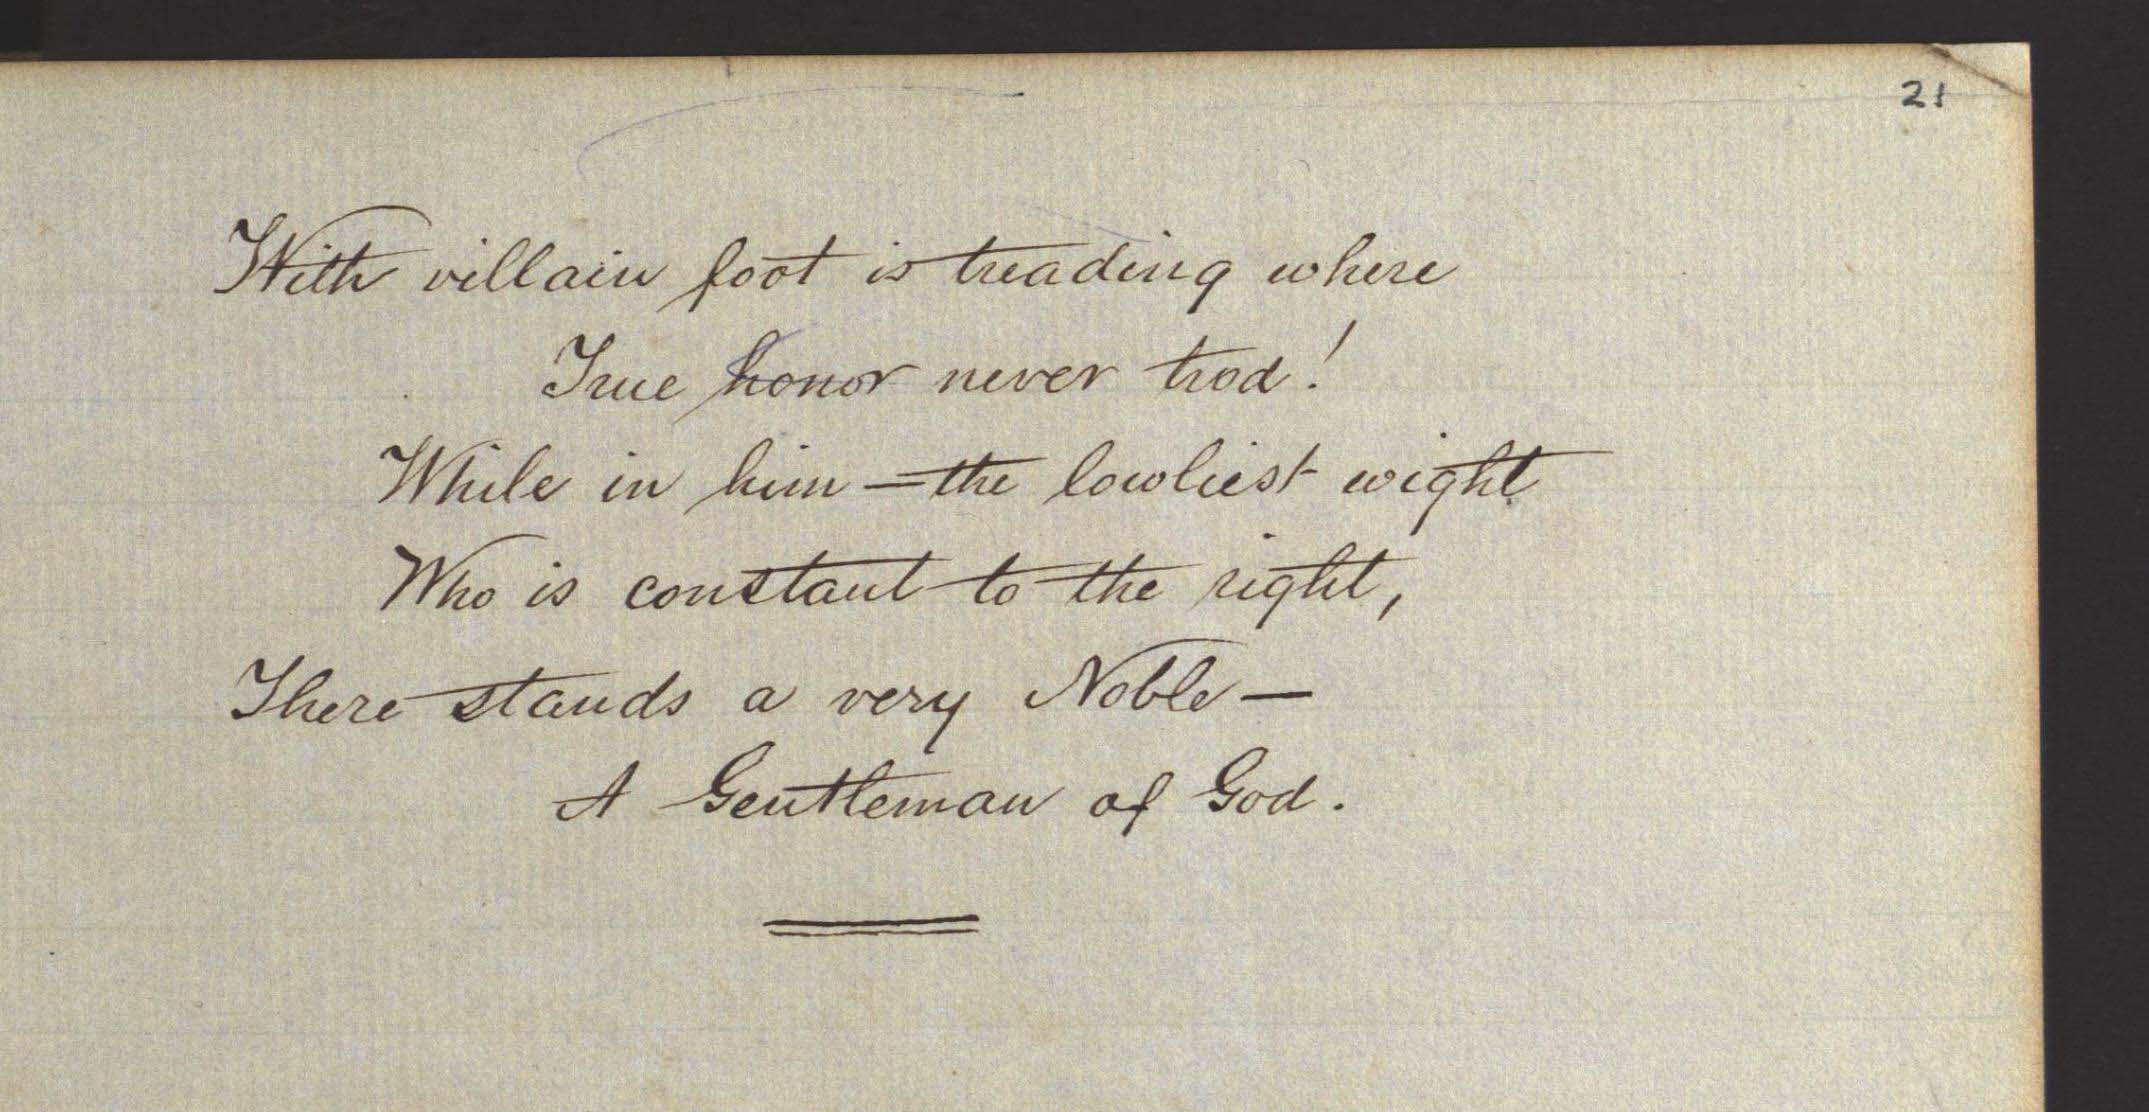 21
With villain foot is treading where
True honor never trod!
While in him — the lowliest wight
Who is constant to the right,
There stands a very Noble —
A Gentleman of God.